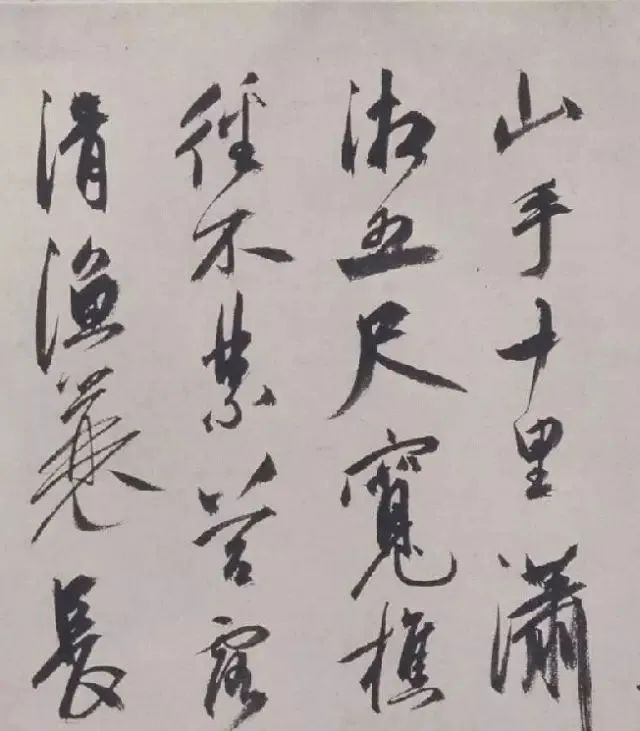 山手十里瀟
湘五尺寬樵
徑不禁苔露
滑漁蓑長